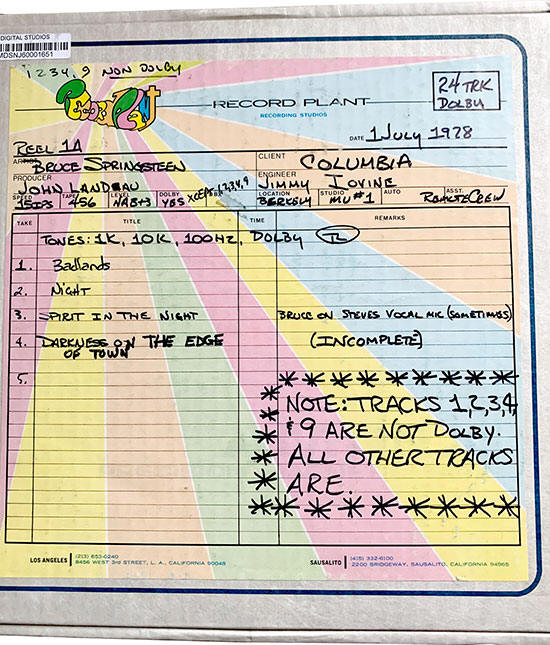 DIGITAL STUDIOS
MDSNJ60001651
1234,9 NON DOLBY
Record Plant
RECORD PLANT
RECORDING STUDIOS
24 TRK
DOLBY
DATE 1 July 1978
REEL 1A
ARTIST BRUCE SPRINGSTEEN
CLIENT COLUMBIA
PRODUCER JOHN LANDAU
ENGINEER JIMMY IOVINE
SPEED 15IPS TAPE 456 LEVEL NAB+3 DOLBY YES XCEPT 1,2,3,4,9 LOCATION BERKELY STUDIO MU #1 AUTO ASST. REMOTE CREW
TAKE TITLE TIME REMARKS
TONES: 1K, 10K, 100HZ, DOLBY
1. Badlands
2. NIGHT
3. SPIRIT IN THE NIGHT BRUCE ON STEVES VOCAL MIC (SOMETIMES)
4. DARKNESS ON THE EDGE (INCOMPLETE)
OF TOWN
5.
* * * * * * * * *
* NOTE: TRACKS 1,2,3,4,
* & 9 ARE NOT DOLBY.
* ALL OTHER TRACKS
* ARE.
* * * * * * * * *
LOS ANGELES (213) 653-0240
8456 WEST 3rd STREET, L. A., CALIFORNIA 90048
SAUSALITO (415) 332-6100
2200 BRIDGEWAY, SAUSALITO, CALIFORNIA 94965